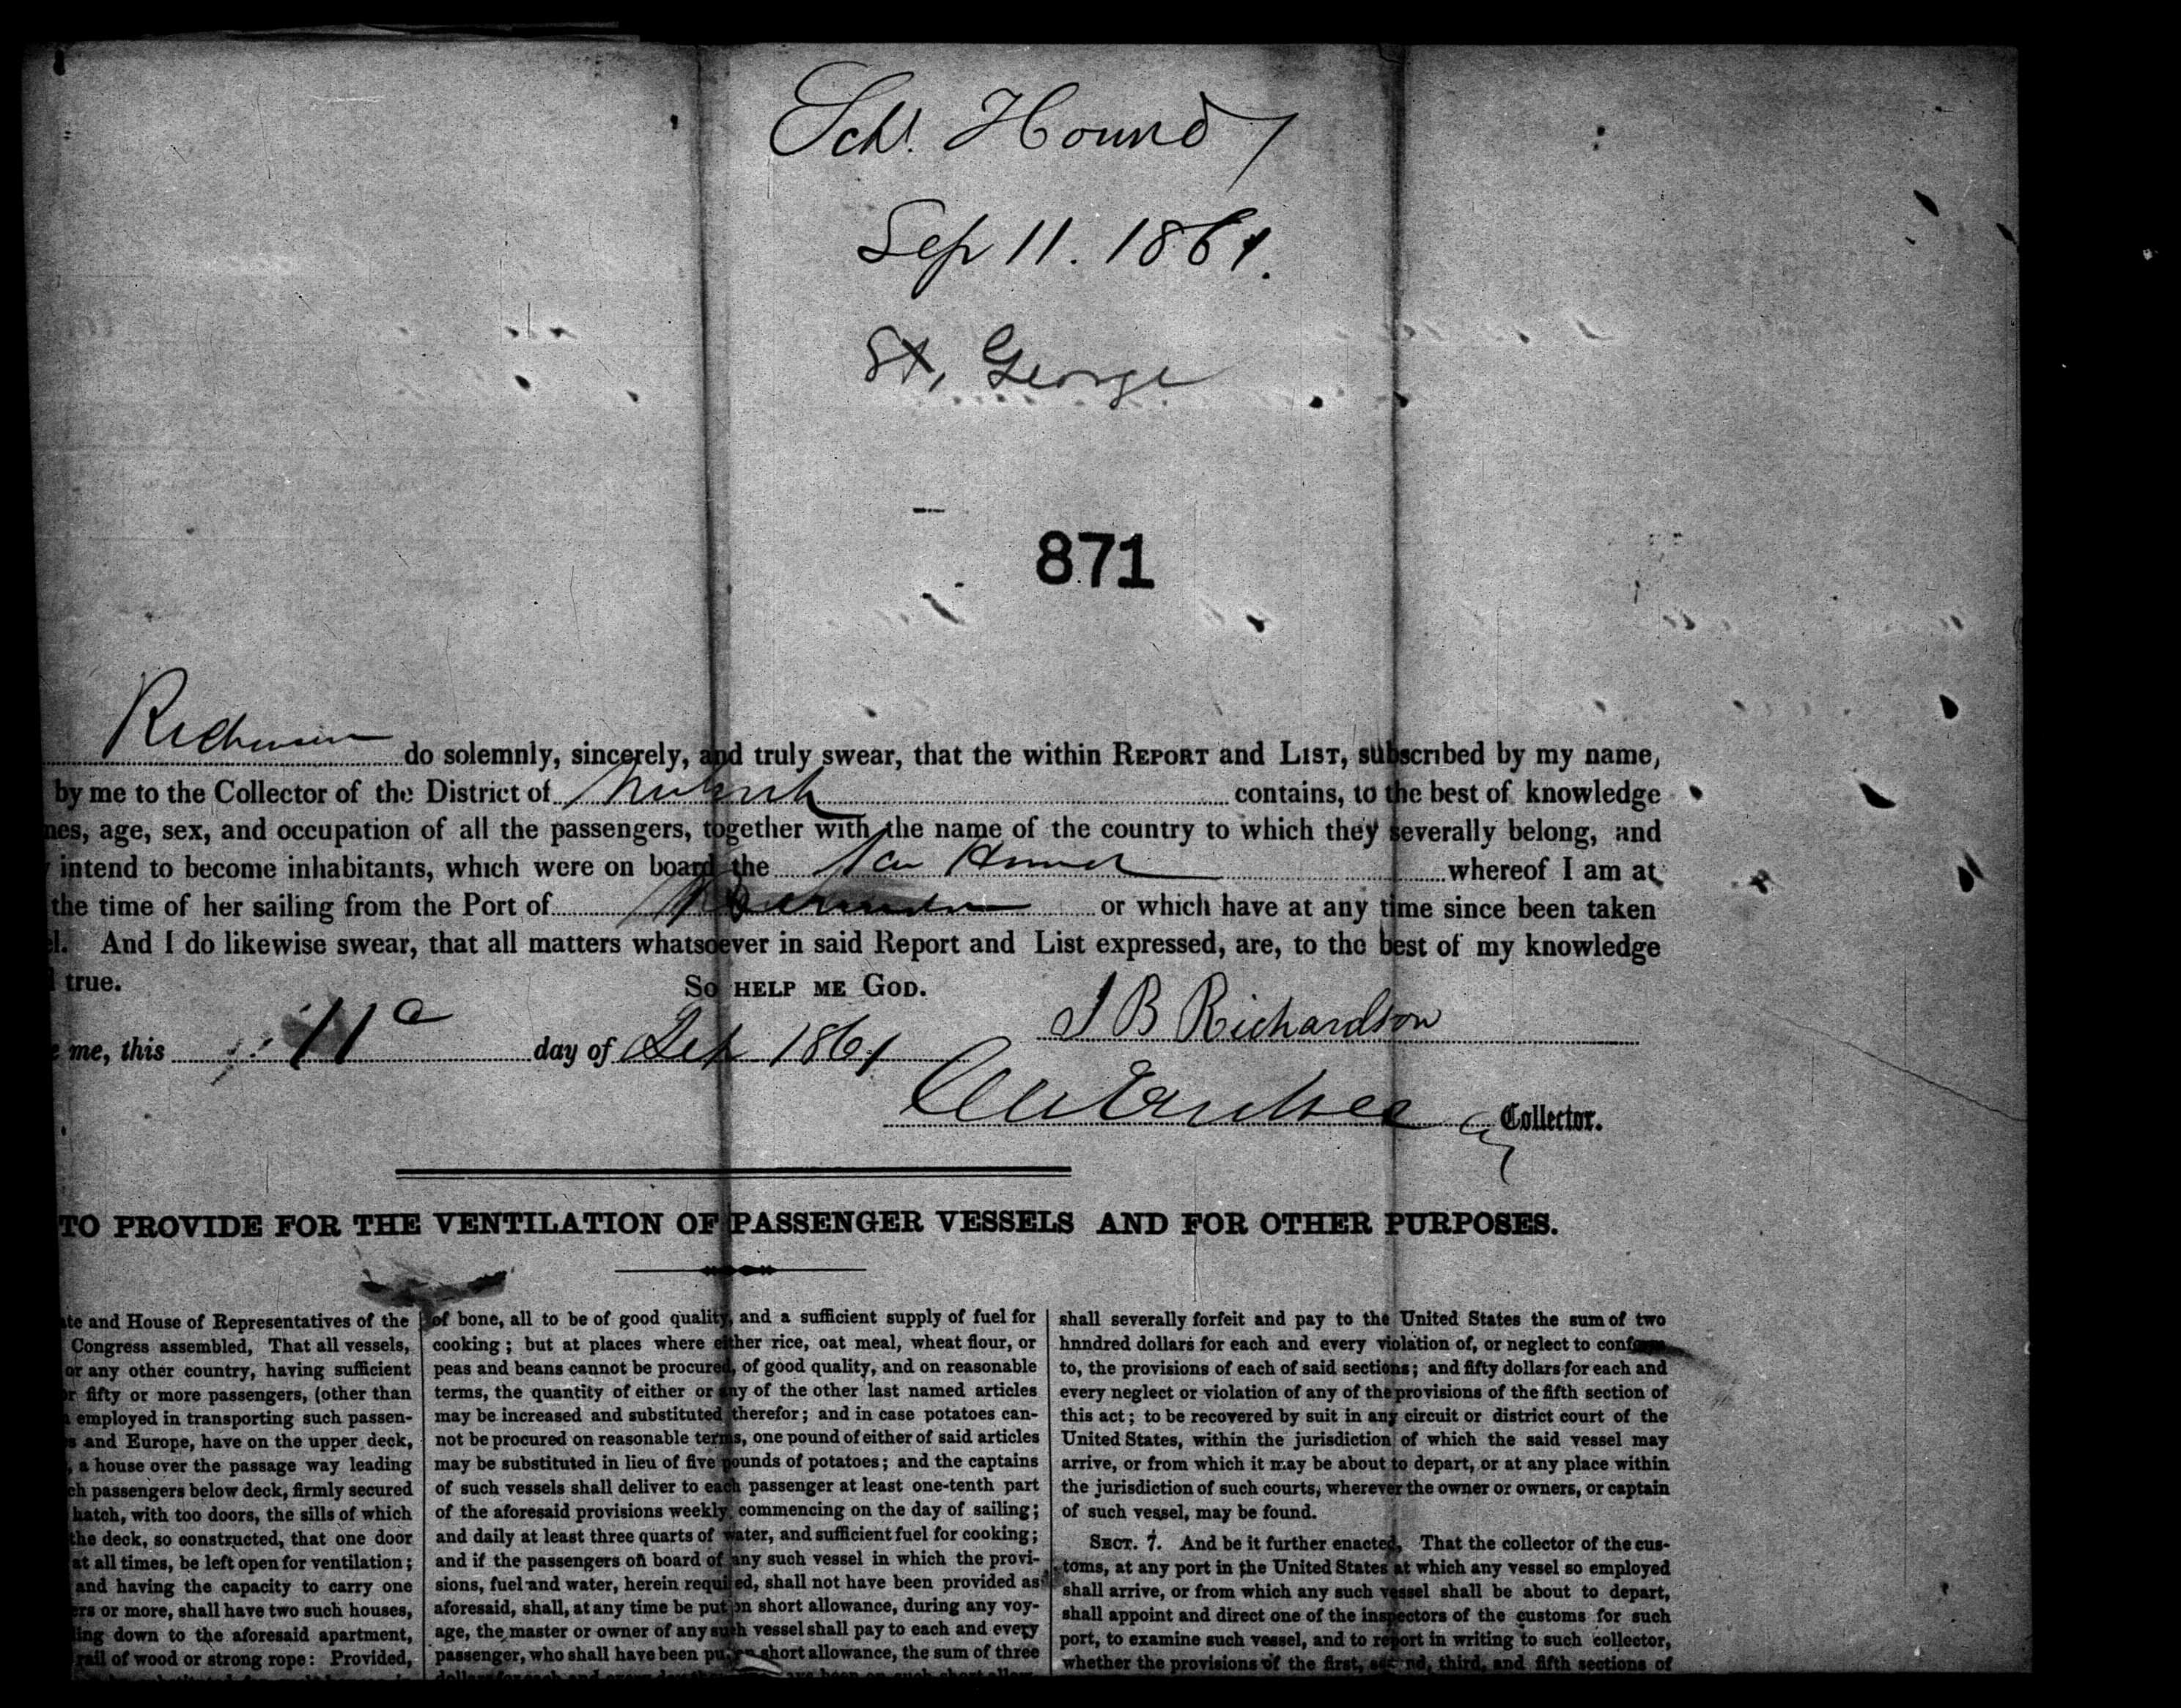 Schr. Hound
Sep 11. 1861.
St, George
871
Richardson do solemnly, sincerely, and truly swear, that the within REPORT and LIST, subscribed by my name,
by me to the Collector of the District of contains, to the best of knowledge
nes, age, sex, and occupation of all the passengers, together with the name of the country to which they severally belong, and
y intend to become inhabitants, which were on board the Scr Hound whereof I am at
the time of her sailing from the Port of or which have at any time since been taken
l. And I do likewise swear, that all matters whatsoever in said Report and List expressed, are, to the best of my knowledge
true.
SO HELP ME GOD.
J B Richardson
e me, this 11 day of Sep 1861
Collector.
TO PROVIDE FOR THE VENTILATION OF PASSENGER VESSELS AND FOR OTHER PURPOSES.
te and House of Representatives of the
Congress assembled, That all vessels,
or any other country, having sufficient
r fifty or more passengers, (other than
employed in transporting such passen-
s and Europe, have on the upper deck,
, a house over the passage way leading
ch passengers below deck, firmly secured
hatch, with too doors, the sills of which
the deck, so constructed, that one door
at all times, be left open for ventilation;
and having the capacity to carry one
ers or more, shall have two such houses,
ling down to the aforesaid apartment,
rail of wood or strong rope: Provided,
of bone, all to be of good quality, and a sufficient supply of fuel for
cooking; but at places where either rice, oat meal, wheat flour, or
peas and beans cannot be procured, of good quality, and on reasonable
terms, the quantity of either or any of the other last named articles
may be increased and substituted therefor; and in case potatoes can-
not be procured on reasonable terms, one pound of either of said articles
may be substituted in lieu of five pounds of potatoes; and the captains
of such vessels shall deliver to each passenger at least one-tenth part
of the aforesaid provisions weekly, commencing on the day of sailing;
and daily at least three quarts of water, and sufficient fuel for cooking;
and if the passengers on board of any such vessel in which the provi-
sions, fuel and water, herein required, shall not have been provided as
aforesaid, shall, at any time be put on short allowance, during any voy-
age, the master or owner of any such vessel shall pay to each and every
passenger, who shall have been put on short allowance, the sum of three
shall severally forfeit and pay to the United States the sum of two
hnndred dollars for each and every violation of, or neglect to conform
to, the provisions of each of said sections; and fifty dollars for each and
every neglect or violation of any of the provisions of the fifth section of
this act; to be recovered by suit in any circuit or district court of the
United States, within the jurisdiction of which the said vessel may
arrive, or from which it may be about to depart, or at any place within
the jurisdiction of such courts, wherever the owner or owners, or captain
of such vessel, may be found.
SECT. 7. And be it further enacted, That the collector of the cus-
toms, at any port in the United States at which any vessel so employed
shall arrive, or from which any such vessel shall be about to depart,
shall appoint and direct one of the inspectors of the customs for such
port, to examine such vessel, and to report in writing to such collector,
whether the provisions of the first, second, third, and fifth sections of